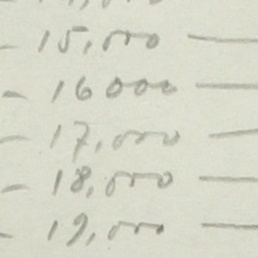 - 15,000 -
- 16000 -
- 17,000 -
- 18,000 -
- 19,000 -